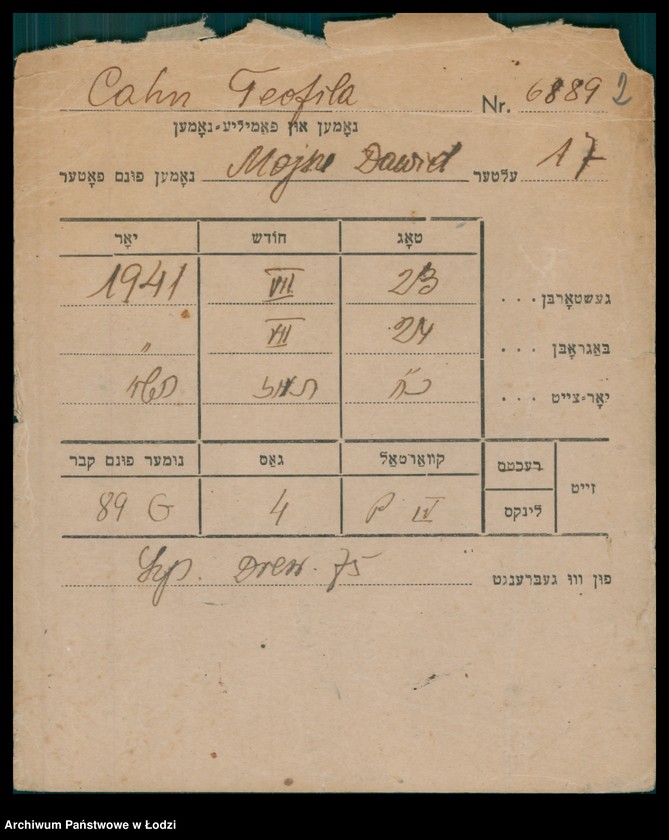 Cahn Teofila Nr. 6889 2
נאָמען און פאַמיליע-נאָמען
נאָמען פונם פאָטער Mojsze Dawid עלטער 17
יאָר חודש טאָג
געשטאָרבן . . . 23 VII 1941
באַגראָבן . . . 24 VII "
יאָר-צייט . . . כ״ח תמוז תש״א
נומער פונם קבר גאַס קוואַרטאַל רעכטס זייט
89 G 4 P IV לינקס
פון וווּ געבּרענגט Szp. Drew. 75
Archiwum Państwowe w Łodzi